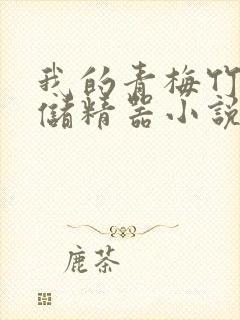 我的青梅竹
儲精器小說
鹿茶